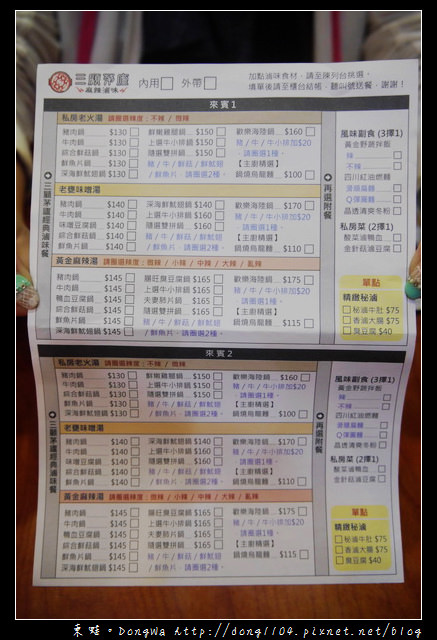 三顧茅廬
麻辣滷味
內用□ 外帶□
加點滷味食材，請至陳列台挑選。
填單後請至櫃台結帳，聽叫號送餐，謝謝！
來賓1
三顧茅廬經典滷味餐
私房老火湯 請圈選辣度：不辣 / 微辣
豬肉鍋 $130
牛肉鍋 $130
綜合鮮菇鍋 $130
鮮魚片鍋 $130
深海鮮魷鍋 $130
鮮嫩雞腿鍋 $150
上選牛小排鍋 $150
隨選雙拼鍋 $150
豬 / 牛 / 鮮菇 / 鮮魷翅
/ 鮮魚片，請圈選2種。
歡樂海陸鍋 $160
豬 / 牛 / 牛小排加$20
，請圈選1種。
【主廚精選】
鍋燒烏龍麵 $100
老甕味噌湯
豬肉鍋 $140
牛肉鍋 $140
味噌豆腐鍋 $140
綜合鮮菇鍋 $140
鮮魚片鍋 $140
深海鮮魷鍋 $140
上選牛小排鍋 $160
隨選雙拼鍋 $160
豬 / 牛 / 鮮菇 / 鮮魷翅
/ 鮮魚片，請圈選2種。
歡樂海陸鍋 $170
豬 / 牛 / 牛小排加$20
，請圈選1種。
【主廚精選】
鍋燒烏龍麵 $110
黃金麻辣湯 請圈選辣度：微辣 / 小辣 / 中辣 / 大辣 / 亂辣
豬肉鍋 $145
牛肉鍋 $145
鴨血豆腐鍋 $145
綜合鮮菇鍋 $145
鮮魚片鍋 $145
深海鮮魷鍋 $145
腸旺臭豆腐鍋 $165
上選牛小排鍋 $165
夫妻肺片鍋 $165
隨選雙拼鍋 $165
豬 / 牛 / 鮮菇 / 鮮魷翅
/ 鮮魚片，請圈選2種。
歡樂海陸鍋 $175
豬 / 牛 / 牛小排加$20
，請圈選1種。
【主廚精選】
鍋燒烏龍麵 $115
再選附餐
風味副食 (3擇1)
黃金野蔬拌飯
辣
不辣
四川紅油燃麵
滑順扁麵
Q彈圓麵
晶透清爽冬粉
私房菜 (2擇1)
酸菜滷鴨血
金針菇滷豆腐
單點
精緻秘滷
□秘滷牛肚 $75
□香滷大腸 $75
□臭豆腐 $40
來賓2
三顧茅廬經典滷味餐
私房老火湯 請圈選辣度：不辣 / 微辣
豬肉鍋 $130
牛肉鍋 $130
綜合鮮菇鍋 $130
鮮魚片鍋 $130
深海鮮魷鍋 $130
鮮嫩雞腿鍋 $150
上選牛小排鍋 $150
隨選雙拼鍋 $150
豬 / 牛 / 鮮菇 / 鮮魷翅
/ 鮮魚片，請圈選2種。
歡樂海陸鍋 $160
豬 / 牛 / 牛小排加$20
，請圈選1種。
【主廚精選】
鍋燒烏龍麵 $100
老甕味噌湯
豬肉鍋 $140
牛肉鍋 $140
味噌豆腐鍋 $140
綜合鮮菇鍋 $140
鮮魚片鍋 $140
深海鮮魷鍋 $140
上選牛小排鍋 $160
隨選雙拼鍋 $160
豬 / 牛 / 鮮菇 / 鮮魷翅
/ 鮮魚片，請圈選2種。
歡樂海陸鍋 $170
豬 / 牛 / 牛小排加$20
，請圈選1種。
【主廚精選】
鍋燒烏龍麵 $110
黃金麻辣湯 請圈選辣度：微辣 / 小辣 / 中辣 / 大辣 / 亂辣
豬肉鍋 $145
牛肉鍋 $145
鴨血豆腐鍋 $145
綜合鮮菇鍋 $145
鮮魚片鍋 $145
深海鮮魷鍋 $145
腸旺臭豆腐鍋 $165
上選牛小排鍋 $165
夫妻肺片鍋 $165
隨選雙拼鍋 $165
豬 / 牛 / 鮮菇 / 鮮魷翅
/ 鮮魚片，請圈選2種。
歡樂海陸鍋 $175
豬 / 牛 / 牛小排加$20
，請圈選1種。
【主廚精選】
鍋燒烏龍麵 $115
再選附餐
風味副食 (3擇1)
黃金野蔬拌飯
辣
不辣
四川紅油燃麵
滑順扁麵
Q彈圓麵
晶透清爽冬粉
私房菜 (2擇1)
酸菜滷鴨血
金針菇滷豆腐
單點
精緻秘滷
□秘滷牛肚 $75
□香滷大腸 $75
□臭豆腐 $40
東蛙。DongWa http://dong1104.pixnet.net/blog